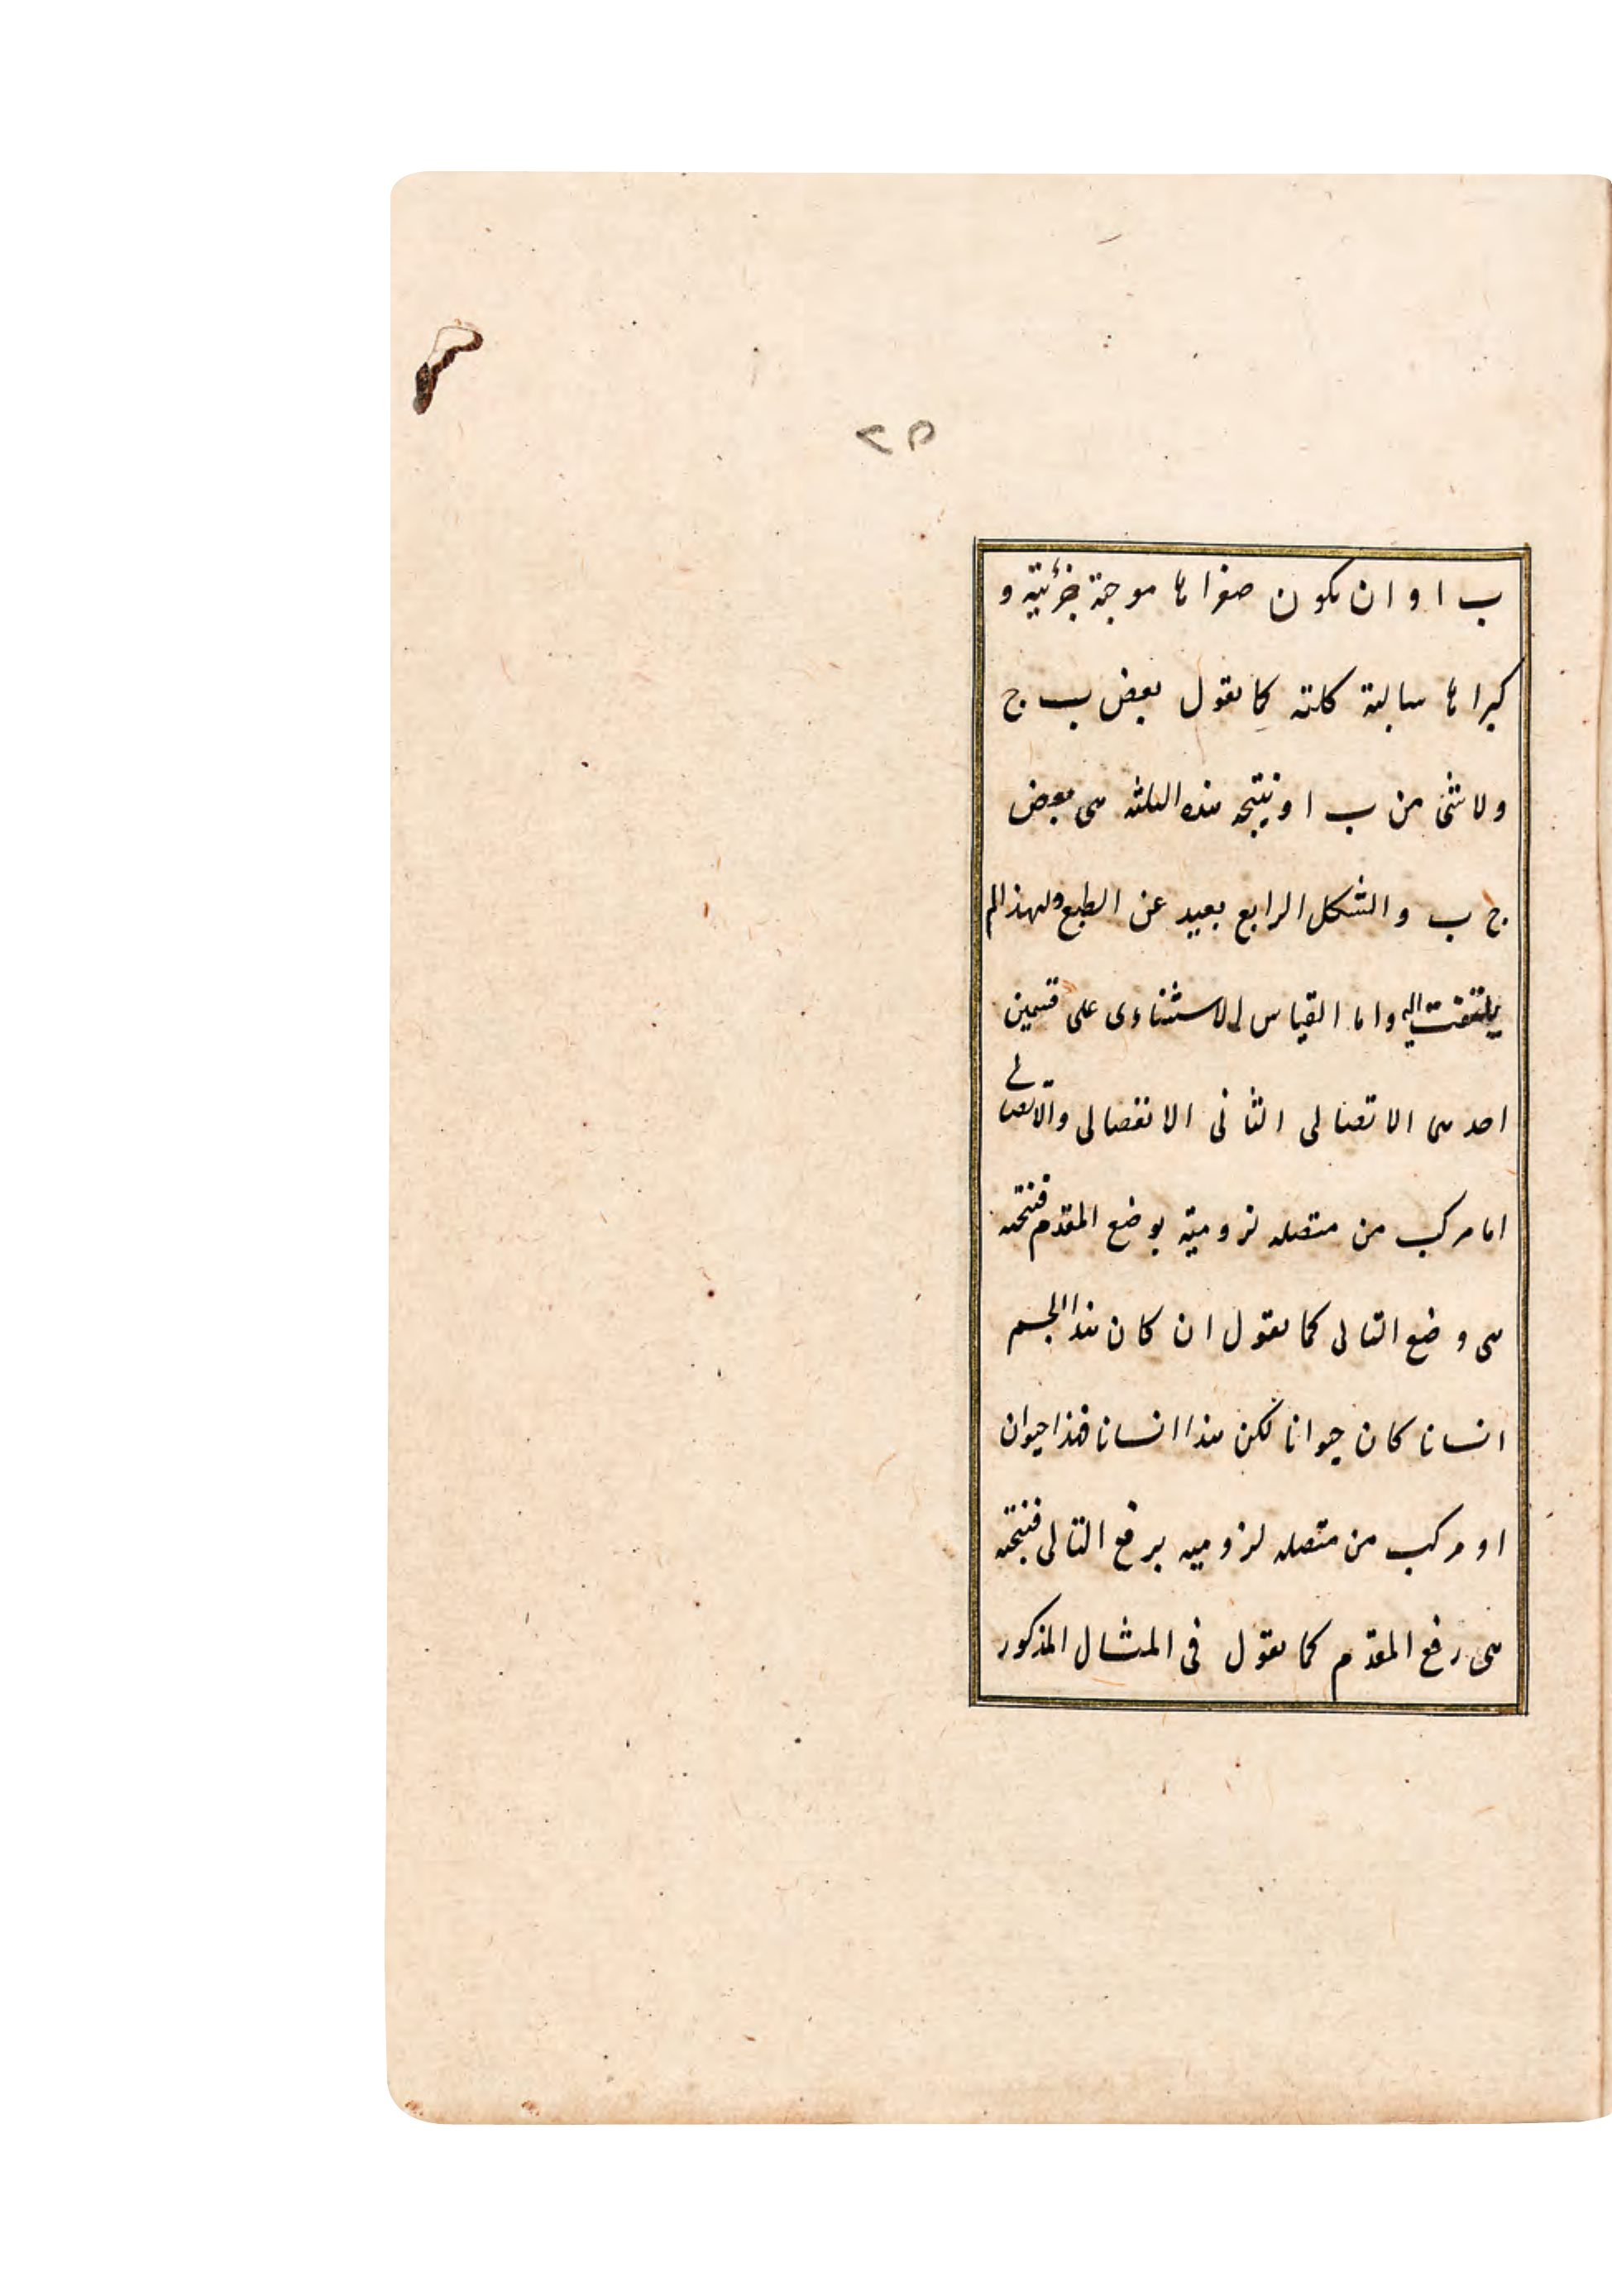 ٢٥
ب ا و ان يكون صغراها موجبة جزئية و
كبراها سالبة كلية كما يقول بعض ب ج
ولا شئ من ب ا ونتيجة هذه الثلثة هى بعض
ج ب والشكل الرابع بعيد عن الطبع ولهذا لم
يلتفت اليه واما القياس الاستثناوى على قسمين
احدهما الاتصالى الثانى الانفصالى والاتصالى
اما مركب من متصلة لزومية بوضع المقدم فنتيجته
هى وضع التالى كما يقول ان كان هذا الجسم
انسانا كان حيوانا لكن هذا انسانا فهذا حيوان
او مركب من متصلة لزومية برفع التالى فنتيجته
هى رفع المقدم كما يقول فى المثال المذكور